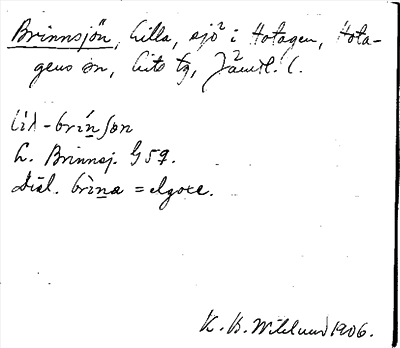 Brinnsjön, Lilla, sjö² i Hotagen, Hota-
gens sn, Lits tg, Jämtl. l.
lìl-brínʃon
L. Brinnsj. G 59.
Dial. brìna = elgoxe.
K. B. Wiklund 1906.